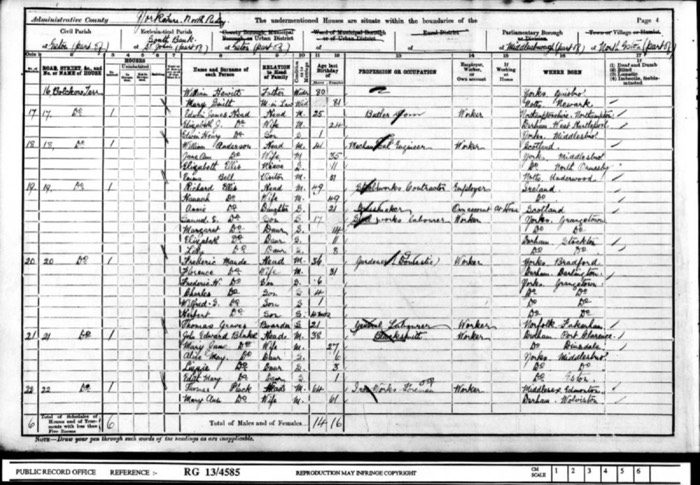 Administrative County Yorkshire North Riding
The undermentioned Houses are situate within the boundaries of the
Page 4
Civil Parish
Ecclesiastical Parish
County Borough, Municipal Borough or Urban District
Ward of Municipal Borough or of Urban District
Rural District
Parliamentary Borough or Division
Town or Village or Hamlet
at Eston (part of)
South Bank St John (part of)
at Eston (part of)
at
at
at Middlesbrough (part of)
at North Eston (part of)
HOUSES
ROAD, STREET, &c., and No. or NAME of HOUSE
Name and Surname of each Person
RELATION to Head of Family
Age last Birthday of
PROFESSION OR OCCUPATION
Employer, Worker, or Own account
If Working at Home
WHERE BORN
(1) Deaf and Dumb
(2) Blind
(3) Lunatic
(4) Imbecile, feeble-minded
16 Bolckow Terr William Hewitt Father Wid 80 Yorks
Mary Wid 81 Notts Newark
17 17 Do 1 Edwin James Head M 25 Worker Northamptonshire Northampton
Elizabeth J. Do Wife M 24 Durham West Hartlepool
Edwin Henry Do Son S 1 Yorks Middlesbro
18 18 Do 1 William Anderson Head M 41 Mechanical Engineer Worker Scotland
Jane Ann Do Wife M 35 Yorks Middlesbro
Elizabeth Ellis Niece S 11 Do North Ormesby
Emma Bell Visitor Notts Underwood
19 19 Do 1 Richard Ellis Head M 49 Steelworks Contractor Employer Ireland
Hannah Do Wife M 49 Do
Annie Do Daughter S 21 Own account At Home Scotland
Samuel E. Do Son S 17 Steel works labourer Worker Yorks Grangetown
Margaret Do Daur S 14 Do Do
Elizabeth Do Daur S 11 Durham Stockton
Lily Do Daur S 8 Do Do
20 20 Do 1 Frederic Head M 36 Gardener (Domestic) Worker Yorks Bradford
Florence Do Wife M 31 Durham Darlington
Frederic H. Do Son S 6 Yorks Grangetown
Charles Do Son S 4 Do Do
Wilfred S. Do Son S 1 Do Do
Herbert Do Son S Do Do
Thomas Graves Boarder S 21 General Labourer Worker Norfolk Fakenham
21 21 Do 1 John Edward Blake Head M 38 Blacksmith Worker Durham Port Clarence
Mary Jane Do Wife M 27 Do Dinsdale
Alice May Do Daur S 6 Yorks Middlesbro
Lizzie Do Daur S 3 Do Do
Edith Mary Do Daur S 1 Do Eston
22 22 Do 1 Thomas Plack Head M 64 Iron Works Foreman Worker Middlesex Edmonton
Mary Ann Do Wife M 61 Durham Wolviston
6 Total of Schedules of Houses and of Tenements with less than Five Rooms 6 Total of Males and of Females 14 16
NOTE—Draw your pen through such words of the headings as are inapplicable.
PUBLIC RECORD OFFICE REFERENCE :- RG 13/4585 REPRODUCTION MAY INFRINGE COPYRIGHT CM SCALE 1 2 3 4 5 6